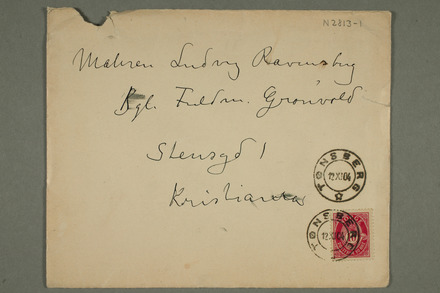 N2813-1
Maleren Ludvig Ravensberg
Fuldm. Grønvold
Stensgd 1
Kristiania
TØNSBERG
12 XI 04
TØNSBERG
12 XI 04